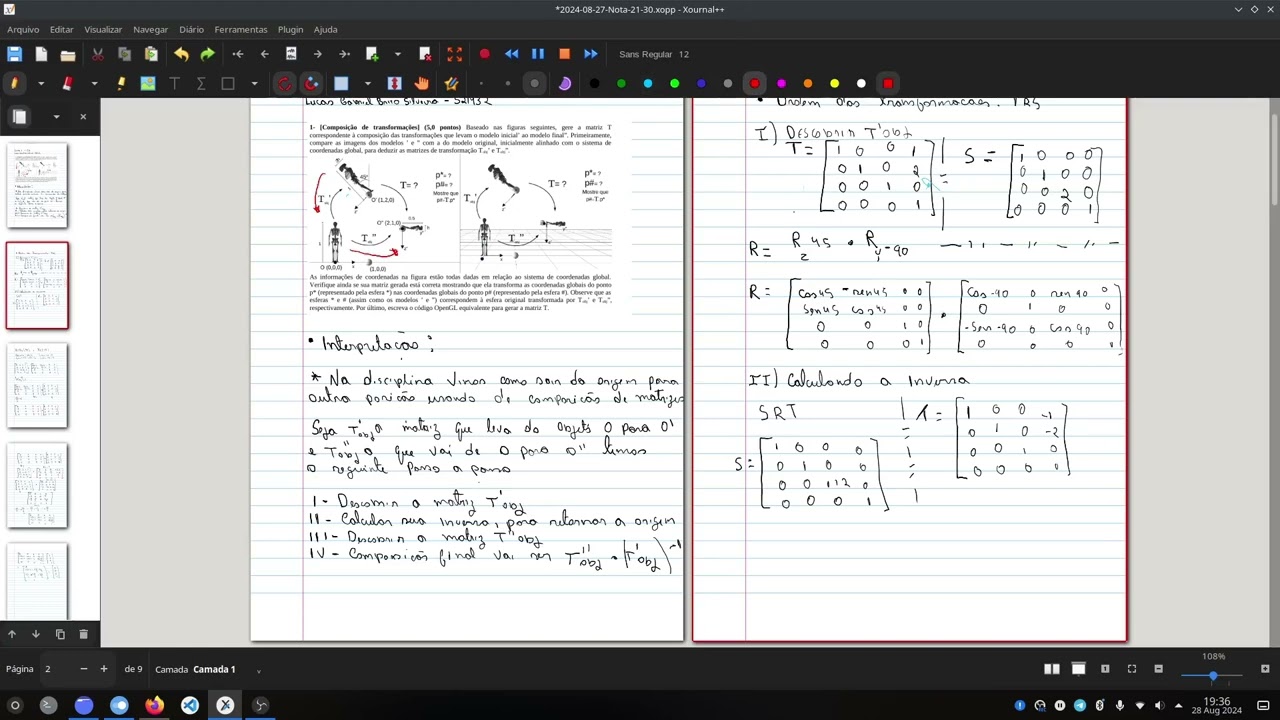 *2024-08-27-Nota-21-30.xopp - Xournal++
Arquivo Editar Visualizar Navegar Diário Ferramentas Plugin Ajuda
Sans Regular 12
1- [Composição de transformações] (5,0 pontos) Baseado nas figuras seguintes, gere a matriz T
correspondente à composição das transformações que levam o modelo inicial' ao modelo final''. Primeiramente,
compare as imagens dos modelos ' e '' com a do modelo original, inicialmente alinhado com o sistema de
coordenadas global, para deduzir as matrizes de transformação Tobj' e Tobj''.
T= ?
p*= ?
p#= ?
Mostre que
p#=T.p*
O' (1,2,0)
O'' (2,1,0)
O (0,0,0)
(1,0,0)
T= ?
p*= ?
p#= ?
Mostre que
p#=T.p*
As informações de coordenadas na figura estão todas dadas em relação ao sistema de coordenadas global.
Verifique ainda se sua matriz gerada está correta mostrando que ela transforma as coordenadas globais do ponto
p* (representado pela esfera *) nas coordenadas globais do ponto p# (representado pela esfera #). Observe que as
esferas * e # (assim como os modelos ' e '') correspondem à esfera original transformada por Tobj' e Tobj'',
respectivamente. Por último, escreva o código OpenGL equivalente para gerar a matriz T.
• Interpretacao:
* Na disciplina vimos como sair da origem para
outra posicão usando de composicão de matrizes
Seja T'obj a matriz que leva do objeto O para O'
e T''obj a que vai de O para O'' temos
o seguinte passo a passo
I - Descobrir a matriz T'obj
II - Calcular sua inversa, para retornar a origem
III - Descobrir a matriz T''obj
IV - Composicão final vai ser T''obj • (T'obj)-1
• Ordem das transformacoes: TRS
I) Descobrir T'obj
T= 1 0 0 1
0 1 0 2
0 0 1 0
0 0 0 1
S = 1 0 0 0
0 1 0 0
0 0 2 0
0 0 0 1
R = Rz 45 • Ry -90
R = cos45 -sen45 0 0
sen45 cos45 0 0
0 0 1 0
0 0 0 1
• cos-90 0 sen-90 0
0 1 0 0
-sen-90 0 cos-90 0
0 0 0 1
II) Calculando a Inversa
SRT
S= 1 0 0 0
0 1 0 0
0 0 1/2 0
0 0 0 1
1 0 0 -1
0 1 0 -2
0 0 1 0
Página 2 de 9 Camada Camada 1
108%
19:36
28 Aug 2024